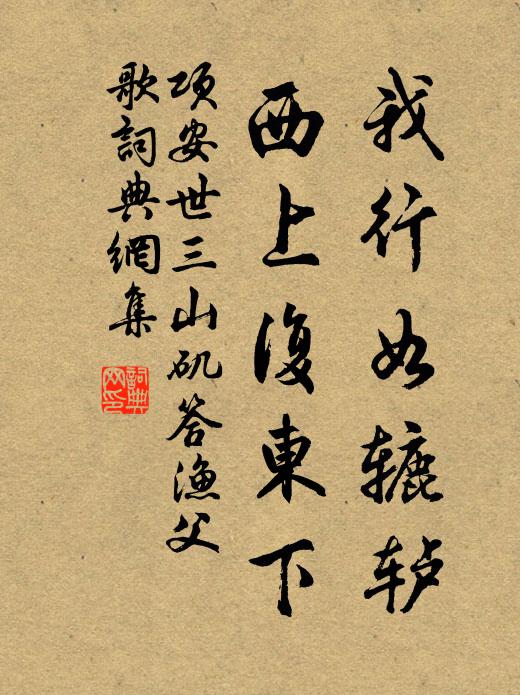 我行如辘轳
西上復東下
项安世三山矶答漁父
歌詞典網集
詞典网印